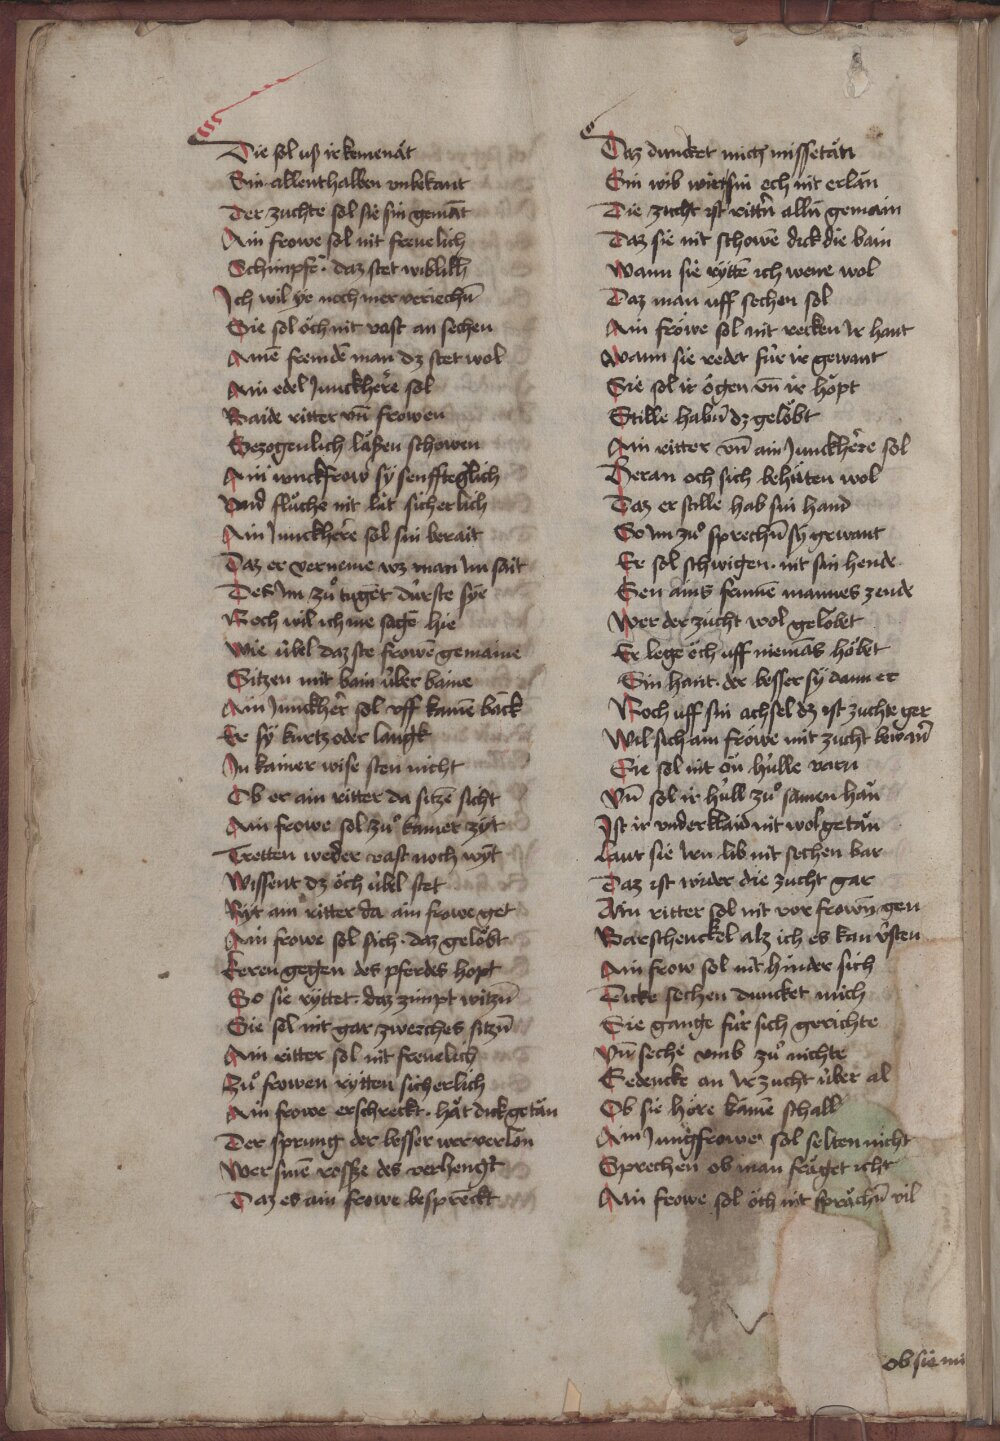 Die sol uß ir kemenăt
Sin allenthalben vnbekant
Der zuchte sol sie sin gemāt
Ain frowe sol nit freuelich
Schimpfē · daz stet wiblikh
Ich wil ÿe noch mer veriechn̄
Sie sol öch nit vast an sechen
Ainē fremdē man dz stet wol
Ain edel Junckhere sol
Baide ritter vn̄ frowen
Gezogenlich laͮßen schowen
Ain iunckfrow sy senffteglich
Vnd fluͤche nit lut sicherlich
Ain Junckhere sol sin berait
Daz er verneme wz man im sait
Des im zuͦ tuget durste sÿe
Noch wil ich me sagē hie
Wie übel daz ste frowē gemaine
Sitzen mit bain über baine
Ain Junckher sol vff kainē banck
Er sÿ kurtz oder langk
In kainer wise sten nicht
Ob er ain ritter da sitzē sicht
Ain frowe sol zuͦ kainer zÿt
Tretten weder vast noch wÿt
Wissent dz öch übel stet
Ryt ain ritter da ain frowe get
Ain frowe sol sich · daz gelöbt
keren gegen des pferdes hopt
So sie ryttet · daz zimpt witzn̄
Sie sol nit gar zwerches sitzn̄
Ain ritter sol nit freuelich
Zuͦ frowen rytten sicherlich
Ain frowe erschreckt · hăt dick getăn
Der sprung der besser wer verlon
Wer sinē rossze des verhengt
Daz es ain frowe besprēckt
Daz duncket mich missetăn
Ein wib wirt sin ech nit erlăn
Die zucht ist rittn̄ alln̄ gemain
Daz sie nit schowē dick die bain
Wann sie ryttē ich wene wol
Daz man uff sechen sol
Ain fröwe sol nit recken Ir hant
Wann sie redet für ir gewant
Sie sol ir ögen vn̄ ir höpt
Stille habn̄ dz gelöbt
Ain ritter vn̄ ain Junckhere sol
Deran och sich behüten wol
Daz er stille hab sin hand
So im zuͦ sprechn̄ sÿ gewant
Er sol schwigen · nit sin hende
Gen ains frumē mannes zende
Wer der zücht wol gelöbet
Er lege öch uff niemās höbet
Sin hant · der besser sÿ dann er
Noch uff sin achsel dz ist zuchte ger
Wil sich ain fröwe mit zucht bewarn̄
Sie sol nit on hülle varn
Vn̄ sol ir hüll zuͦ samen hăn
Ist ir vnder klaid nit wol getăn
Laut sie Irn lib nit sechen bar
Daz ist wider die zucht gar
Ain ritter sol nit vor frown̄ gen
Barschenckel alz ich es kan v̈sten
Ain frow sol nit hinder sich
Dicke sechen duncket mich
Sie gange für sich gerichte
Vn̄ seche vmb zuͦ nichte
Gedencke an Ir zucht über al
Ob sie höre kainē schall
Ain Jungfrowe sol selten nicht
Sprechen ob man frăget icht
Ain frowe sol öch nit sprăchn̄ vil
ob sie mi